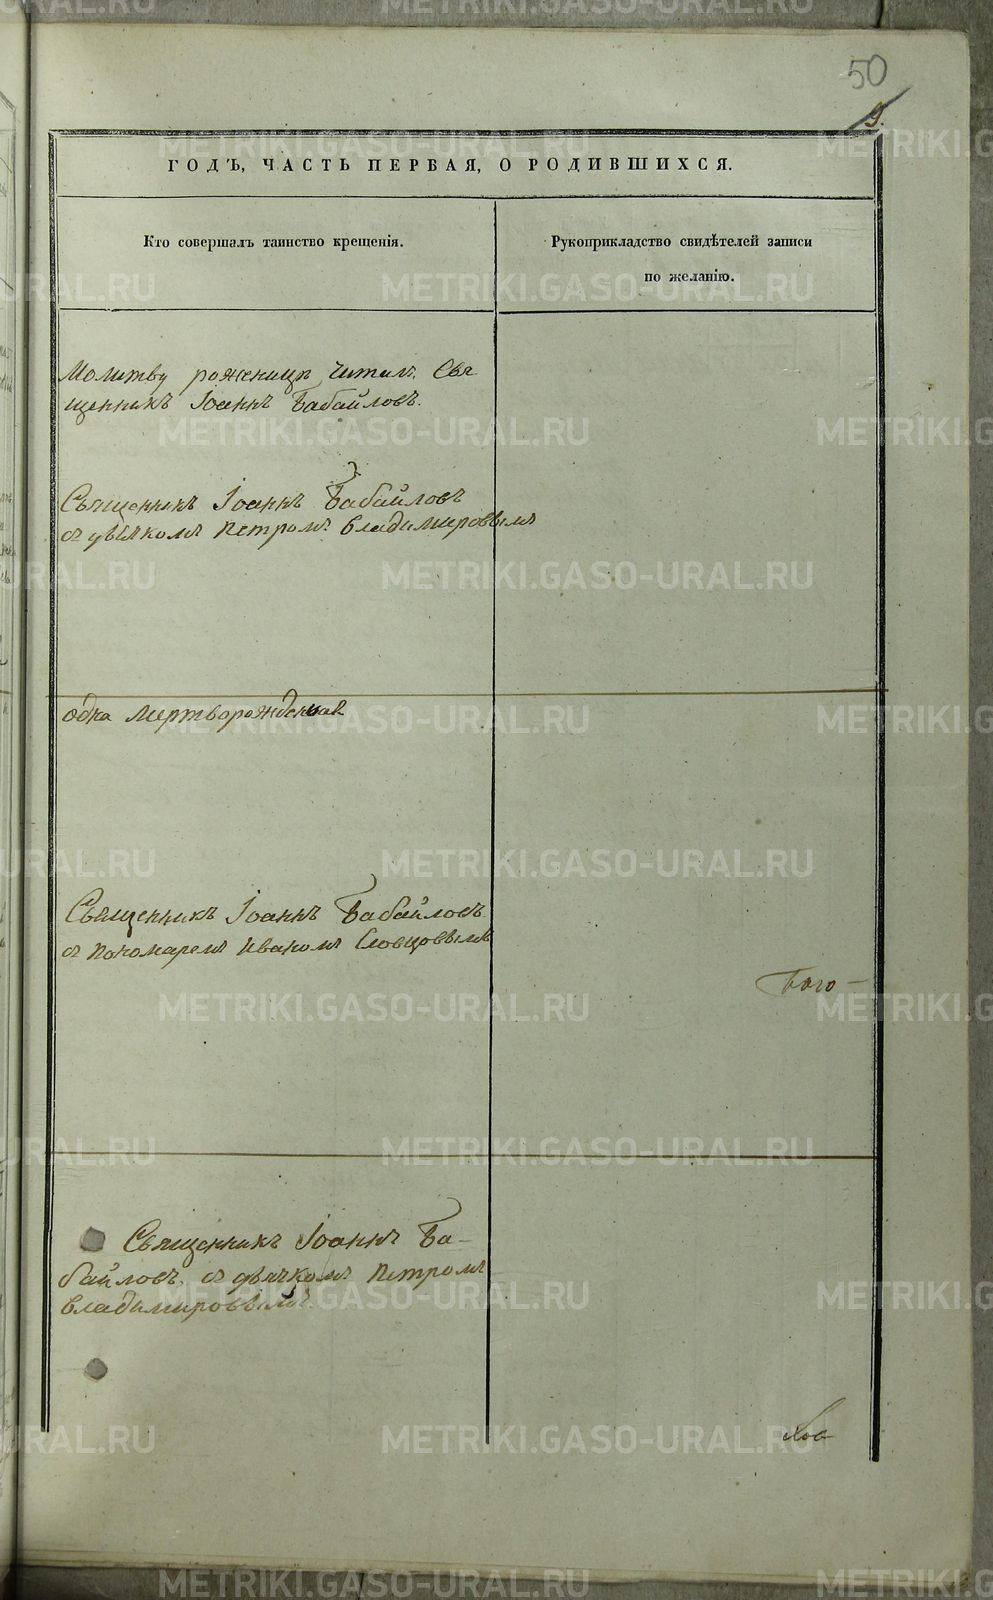 50
9.
ГОДЪ, ЧАСТЬ ПЕРВАЯ, О РОДИВШИХСЯ.
Кто совершалъ таинство крещенія.
Рукоприкладство свидѣтелей записи
по желанію.
Молитву роженицѣ читалъ Свя
щенникъ Іоаннъ Бабайловъ.
Священникъ Іоаннъ Бабайловъ
съ дьячкомъ Петромъ Владимировымъ
одна мертворожденная
Священникъ Іоаннъ Бабайловъ
съ пономаремъ Иваномъ Словцовымъ
Бого-
Священникъ Іоаннъ Ба-
байловъ, съ дьячкомъ Петромъ
Владимировымъ.
METRIKI.GASO-URAL.RU